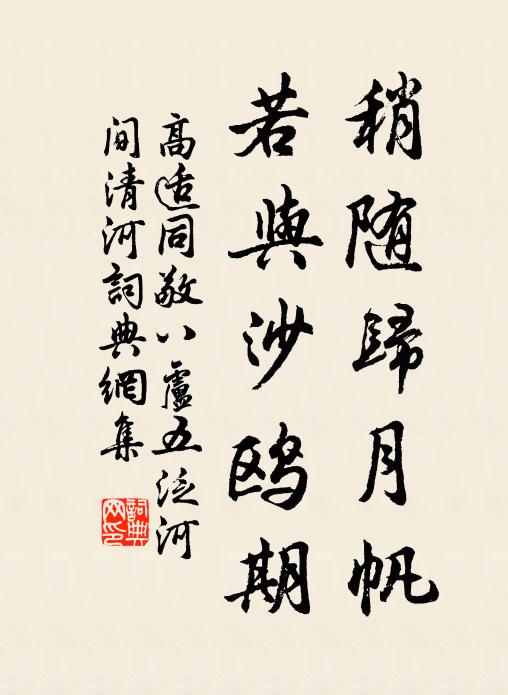 稍随歸月帆
若與沙鸥期
高适同敬八盧五泛河
间清河詞典網集
詞典网印